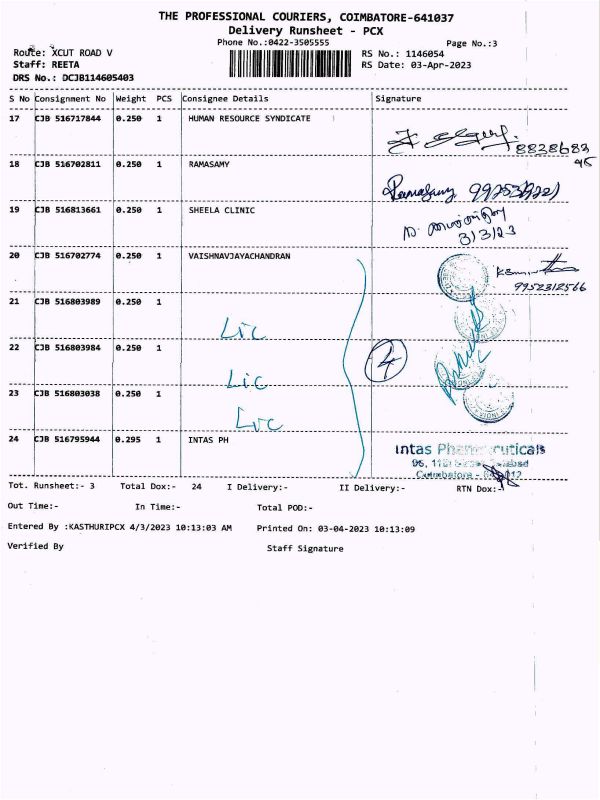 THE PROFESSIONAL COURIERS, COIMBATORE-641037
Delivery Runsheet - PCX
Phone No.:0422-3505555
Page No.:3
Route: XCUT ROAD V
RS No.: 1146054
Staff: REETA
RS Date: 03-Apr-2023
DRS No.: DCJB114605403
S No Consignment No Weight PCS Consignee Details Signature
17 CJB 516717844 0.250 1 HUMAN RESOURCE SYNDICATE
8838683
45
18 CJB 516702811 0.250 1 RAMASAMY
Ramasamy
19 CJB 516813661 0.250 1 SHEELA CLINIC
3/3/23
20 CJB 516702774 0.250 1 VAISHNAVJAYACHANDRAN
9952312566
21 CJB 516803989 0.250 1
LIC
22 CJB 516803984 0.250 1
4
LIC
23 CJB 516803038 0.250 1
LIC
24 CJB 516795944 0.295 1 INTAS PH
Intas Pharmaceuticals
Coimbatore
Tot. Runsheet:- 3 Total Dox:- 24 I Delivery:- II Delivery:- RTN Dox:-
Out Time:- In Time:- Total POD:-
Entered By :KASTHURIPCX 4/3/2023 10:13:03 AM Printed On: 03-04-2023 10:13:09
Verified By Staff Signature